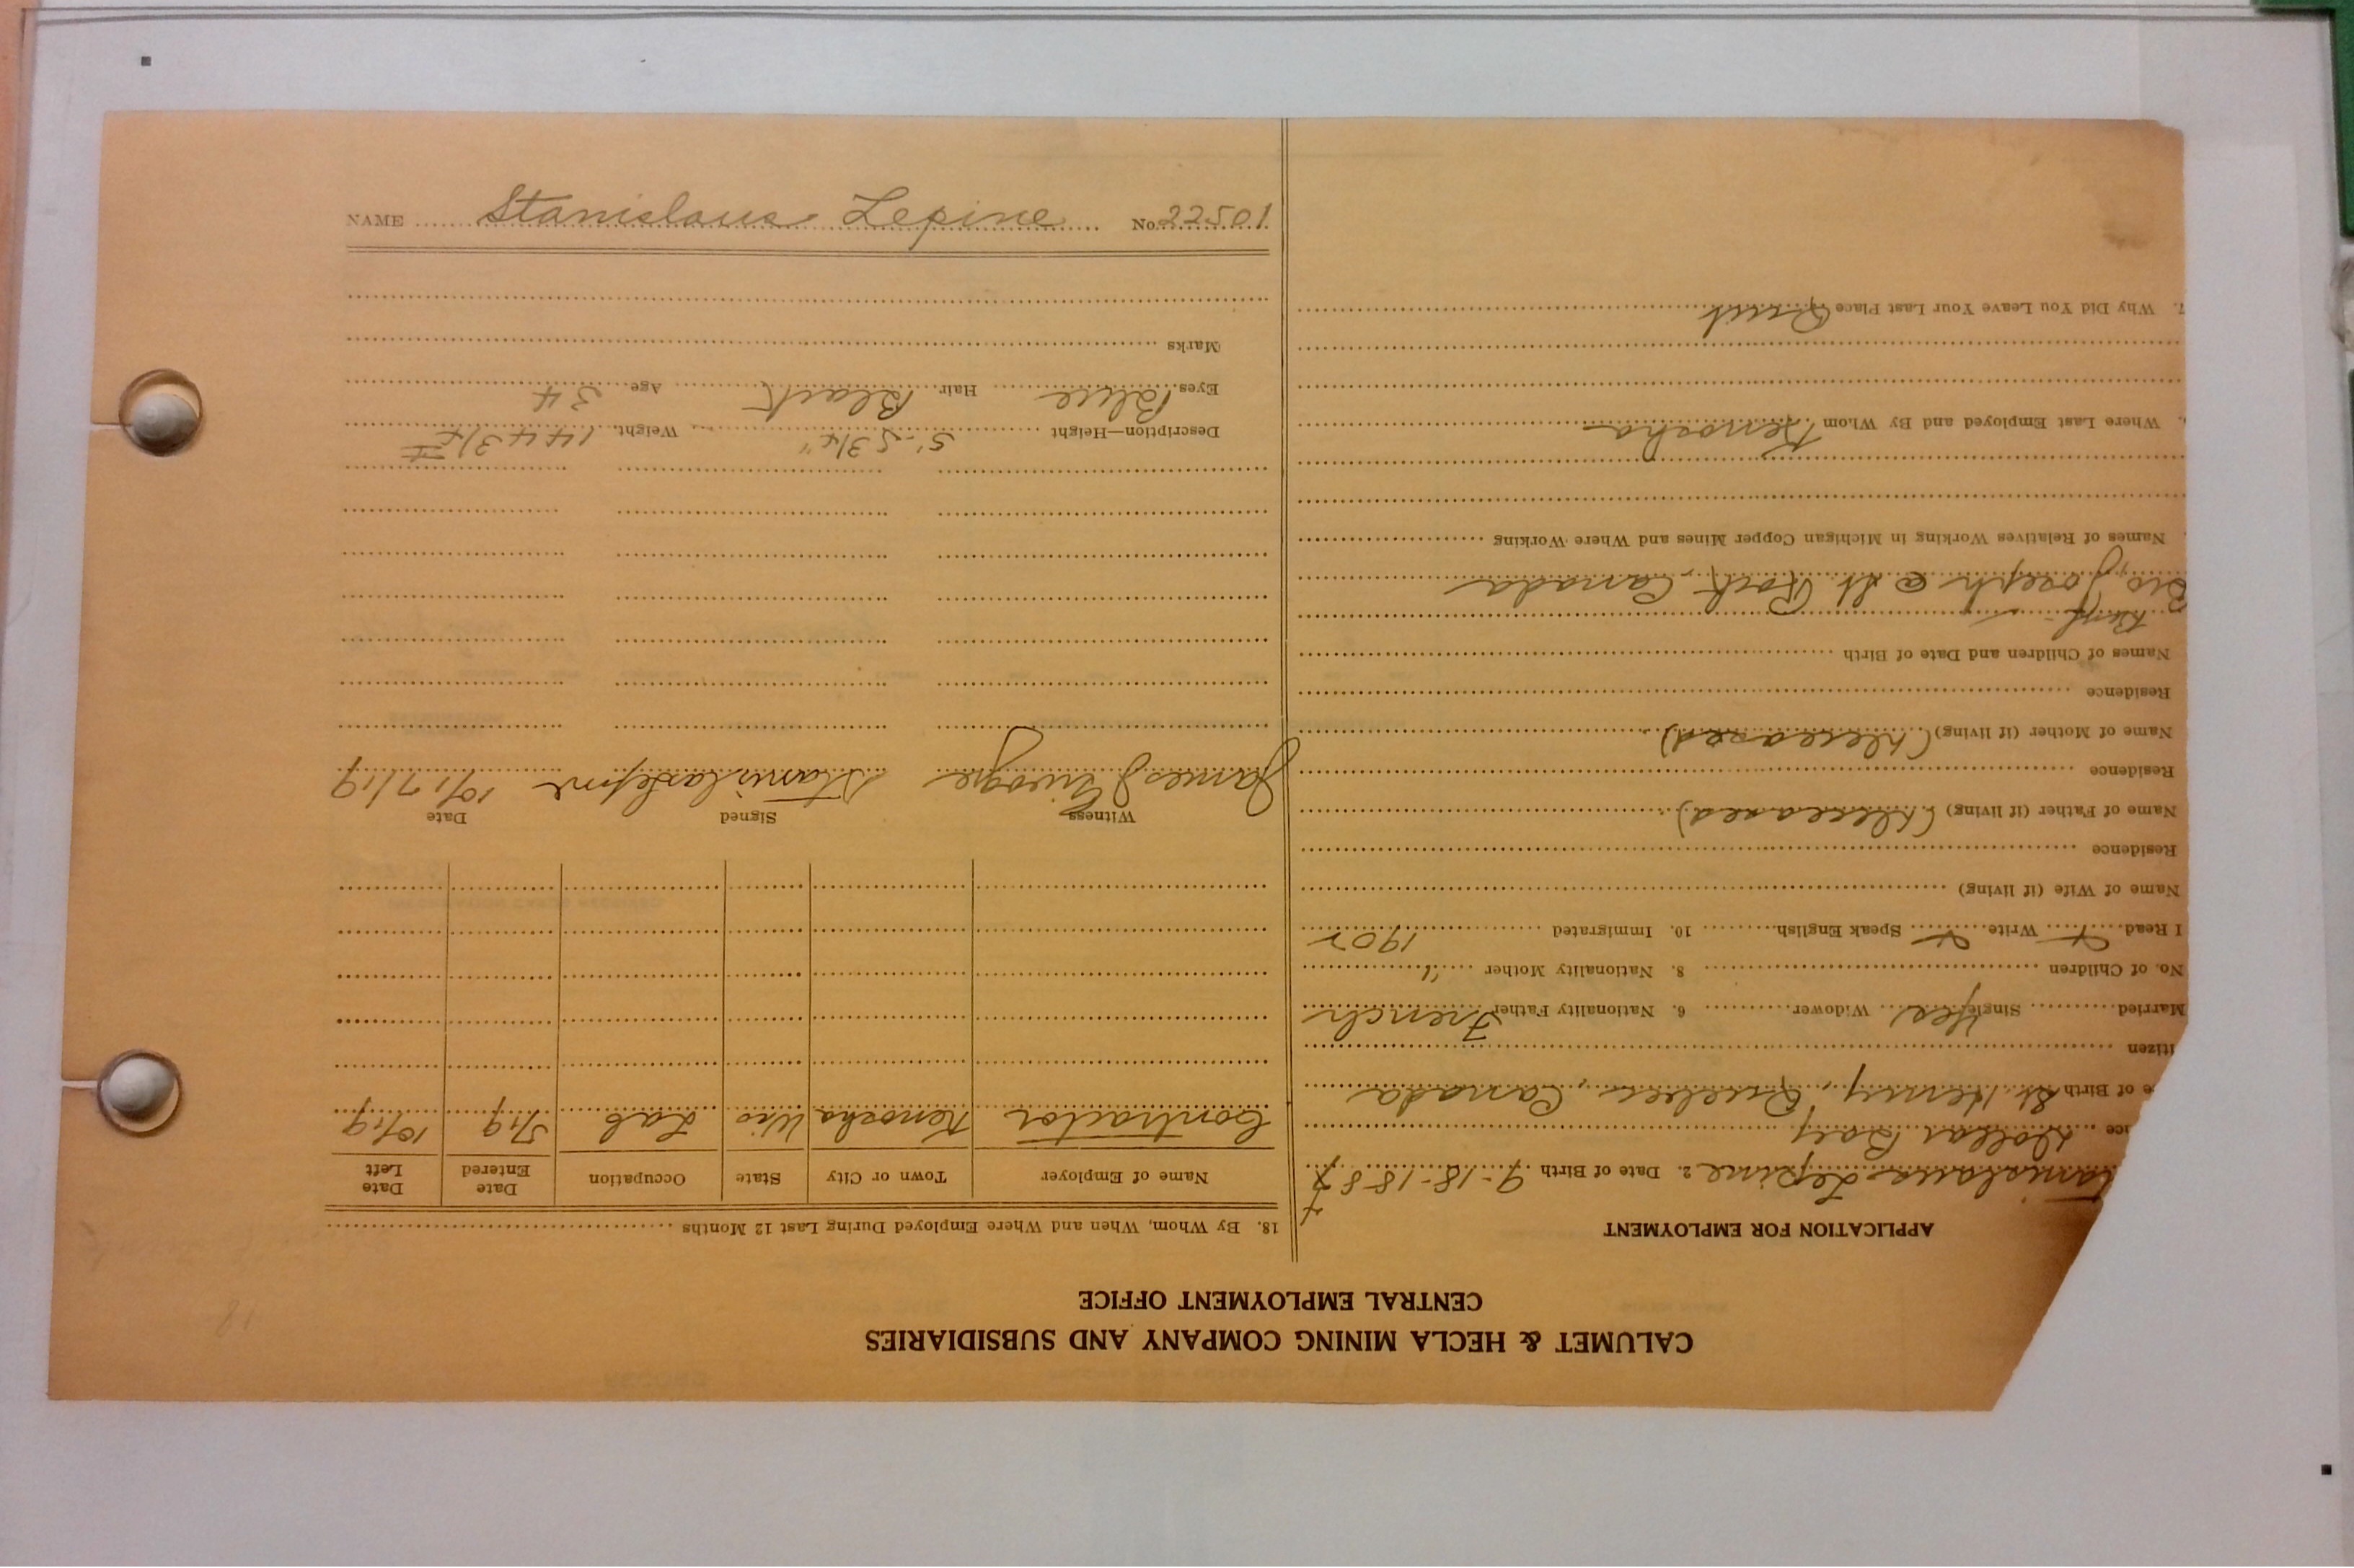 CALUMET & HECLA MINING COMPANY AND SUBSIDIARIES
CENTRAL EMPLOYMENT OFFICE
APPLICATION FOR EMPLOYMENT
tanislaus Lepine 2. Date of Birth 9-18-188
ce Dollar Bay
ce of Birth St. Henry, Quebec, Canada
itizen
Married Single Yes Widower 6. Nationality Father French
No. of Children 8. Nationality Mother "
I Read Write Speak English 10. Immigrated 1902
Name of Wife (if living)
Residence
Name of Father (if living) (Deceased)
Residence
Name of Mother (if living) (Deceased)
Residence
Names of Children and Date of Birth
Bro, Joseph @ St Canada
Names of Relatives Working in Michigan Copper Mines and Where Working
Where Last Employed and By Whom Kenosha
7. Why Did You Leave Your Last Place Quit
18. By Whom, When and Where Employed During Last 12 Months
Name of Employer Town or City State Occupation Date Entered Date Left
Contractor Kenosha Wis Lab 5/19 10/19
Witness Signed Date
James Stanislas Lepine 10/17/19
Description—Height 5'-5 3/4" Weight 144 3/4 #
Eyes Blue Hair Black Age 34
Marks
NAME Stanislaus Lepine No. 22501